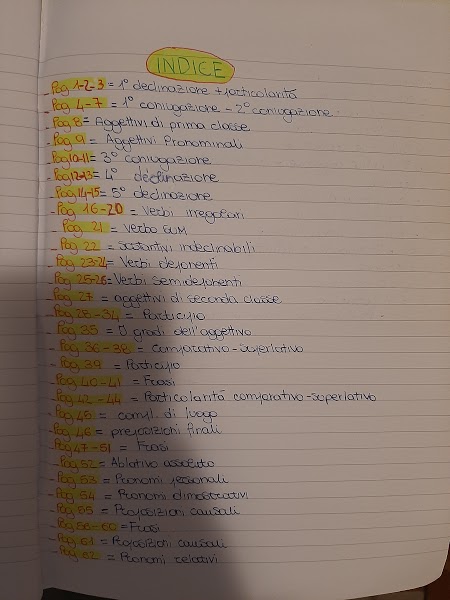 INDICE
Pag 1-2-3 = 1° declinazione + particolarità
- Pag 4-7 = 1° coniugazione - 2° coniugazione
- Pag 8 = Aggettivi di prima classe
- Pag 9 = Aggettivi Pronominali
- Pag 10-11 = 3° coniugazione
- Pag 12-13 = 4° declinazione
- Pag 14-15 = 5° declinazione
- Pag 16-20 = Verbi irregolari
- Pag 21 = Verbo EUM
- Pag 22 = sostantivi indeclinabili
- Pag 23-24 = Verbi deponenti
- Pag 25-26 = Verbi semideponenti
- Pag 27 = aggettivi di seconda classe
- Pag 28-34 = Participio
- Pag 35 = I gradi dell'aggettivo
- Pag 36-38 = Comparativo-superlativo
- Pag 39 = Participio
- Pag 40-41 = Frasi
- Pag 42-44 = Particolarità comparativo-superlativo
- Pag 45 = compl. di luogo
- Pag 46 = preposizioni finali
- Pag 47-51 = Frasi
- Pag 52 = Ablativo assoluto
- Pag 53 = Pronomi personali
- Pag 54 = Pronomi dimostrativi
- Pag 55 = Proposizioni causali
- Pag 56-60 = Frasi
- Pag 61 = Proposizioni causali
- Pag 62 = Pronomi relativi